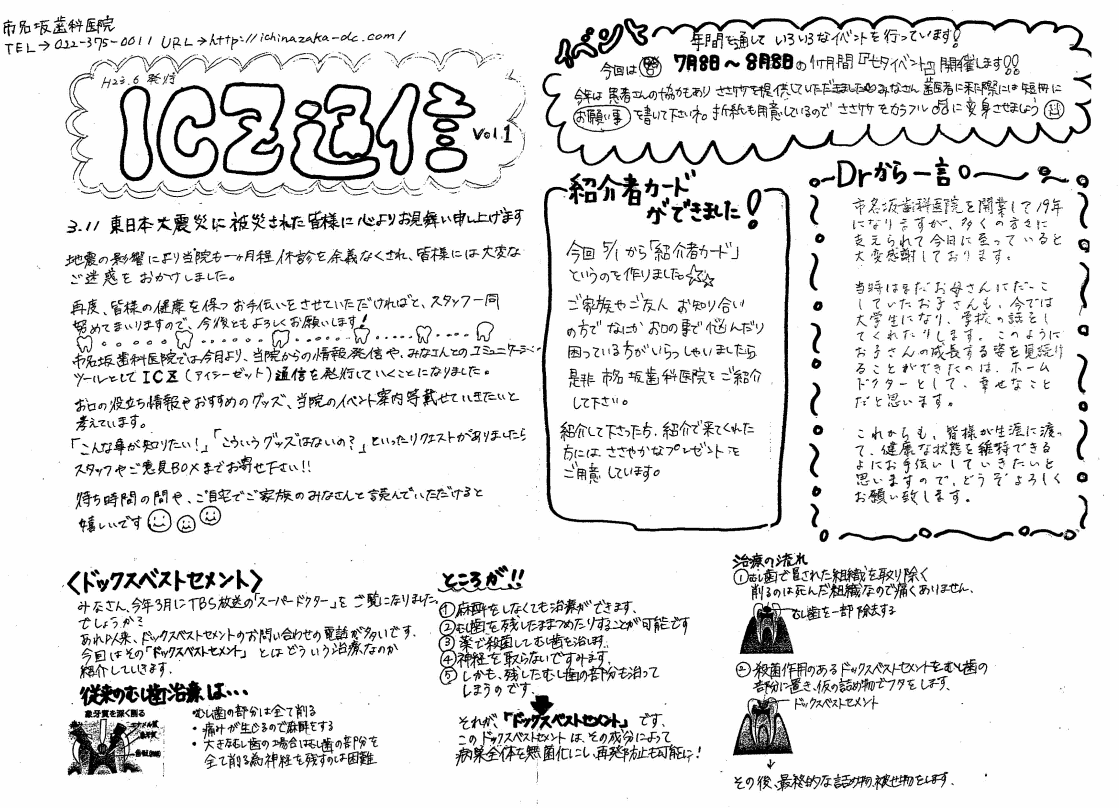 市名坂歯科医院
TEL→022-375-0011 URL→http://ichinazaka-dc.com/
H23.6発行
ICZ通信 Vol.1
3.11 東日本大震災に被災された皆様に心よりお見舞い申し上げます
地震の影響により当院も一ヶ月程休診を余儀なくされ、皆様には大変な
ご迷惑をおかけしました。
再度、皆様の健康を保つお手伝いをさせていただければと、スタッフ一同
努めてまいりますので、今後ともよろしくお願いします!
市名坂歯科医院では今月より、当院からの情報発信や、みなさんとのコミュニケーション
ツールとしてICZ(アイシーゼット)通信を発行していくことになりました。
お口の役立ち情報やおすすめのグッズ、当院のイベント案内等載せていきたいと
考えています。
「こんな事が知りたい!」「こういうグッズはないの?」といったリクエストがありましたら
スタッフやご意見BOXまでお寄せ下さい!!
待ち時間の間や、ご自宅でご家族のみなさんと読んでいただけると
嬉しいです
イベント
年間を通して いろいろなイベントを行っています!
今回は 7月8日〜8月8日の1ヶ月間『七夕イベント』開催します!!
今年は患者さんの協力もあり ささ竹を提供していただきました みなさん 歯医者に来た際には短冊に
お願い事を書いて下さいね。折紙も用意しているので ささ竹をカラフルに変身させましょう
紹介者カード
ができました!
今回 5/1から「紹介者カード」
というのを作りました☆☆
ご家族やご友人 お知り合い
の方でなにかお口の事で悩んだり
困っている方がいらっしゃいましたら
是非 市名坂歯科医院をご紹介
して下さい。
紹介して下さった方、紹介で来てくれた
方には ささやかなプレゼントを
ご用意しています。
Drから一言
市名坂歯科医院を開業して19年
になりますが、多くの方々に
支えられて今日に至っていると
大変感謝しております。
当時はまだお母さんにだっこ
していたお子さんも、今では
大学生になり、学校の話をし
てくれたりします。このように
お子さんの成長する姿を見続け
ることができたのは、ホーム
ドクターとして、幸せなこと
だと思います。
これからも、皆様が生涯に渡っ
て、健康な状態を維持できる
よにお手伝いしていきたいと
思いますので、どうぞよろしく
お願い致します。
〈ドックスベストセメント〉
みなさん、今年3月にTBS放送の「スーパードクター」をご覧になりました
でしょうか?
あれ以来、ドックスベストセメントのお問い合わせの電話が多いです。
今回はその「ドックスベストセメント」とはどういう治療なのか
紹介していきます。
従来のむし歯治療は・・・
象牙質を深く削る
エナメル質
象牙質
・むし歯の部分は全て削る
・痛みが生じるので麻酔をする
・大きなむし歯の場合はむし歯の部分を
全て削る為神経を残すのは困難
ところが!!
①麻酔をしなくても治療ができます。
②むし歯を残したままつめたりすることが可能です
③薬で殺菌してむし歯を治します。
④神経を取らないですみます。
⑤しかも、残したむし歯の部分も治って
しまうのです。
それが、「ドックスベストセメント」です。
このドックスベストセメントは、その成分によって
病巣全体を無菌化にし、再発防止も可能に!
治療の流れ
①むし歯で冒された組織を取り除く
削るのは死んだ組織なので痛くありません。
むし歯を一部除去する
②殺菌作用のあるドックスベストセメントをむし歯の
部分に置き、仮の詰め物でフタをします。
ドックスベストセメント
その後、最終的な詰め物、被せ物をします。